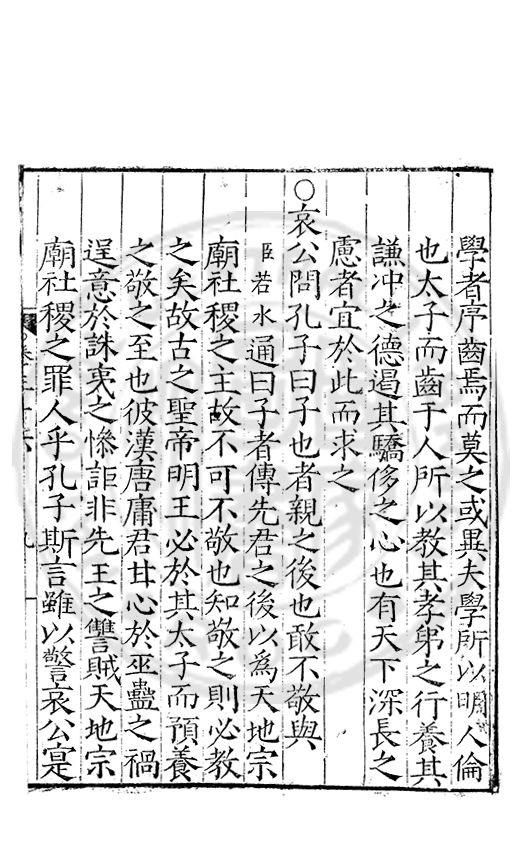 學者序齒焉而莫之或異夫學所以明人倫
也太子而齒于人所以教其孝弟之行養其
謙冲之德遏其驕侈之心也有天下深長之
慮者宜於此而求之
○哀公問孔子曰子也者親之後也敢不敬與
臣若水通曰子者傳先君之後以為天地宗
廟社稷之主故不可不敬也知敬之則必教
之矣故古之聖帝明王必於其太子而預養
之敬之至也彼漢唐庸君甘心於巫蠱之禍
逞意於誅戮之慘詎非先王之讐賊天地宗
廟社稷之罪人乎孔子斯言雖以警哀公寔